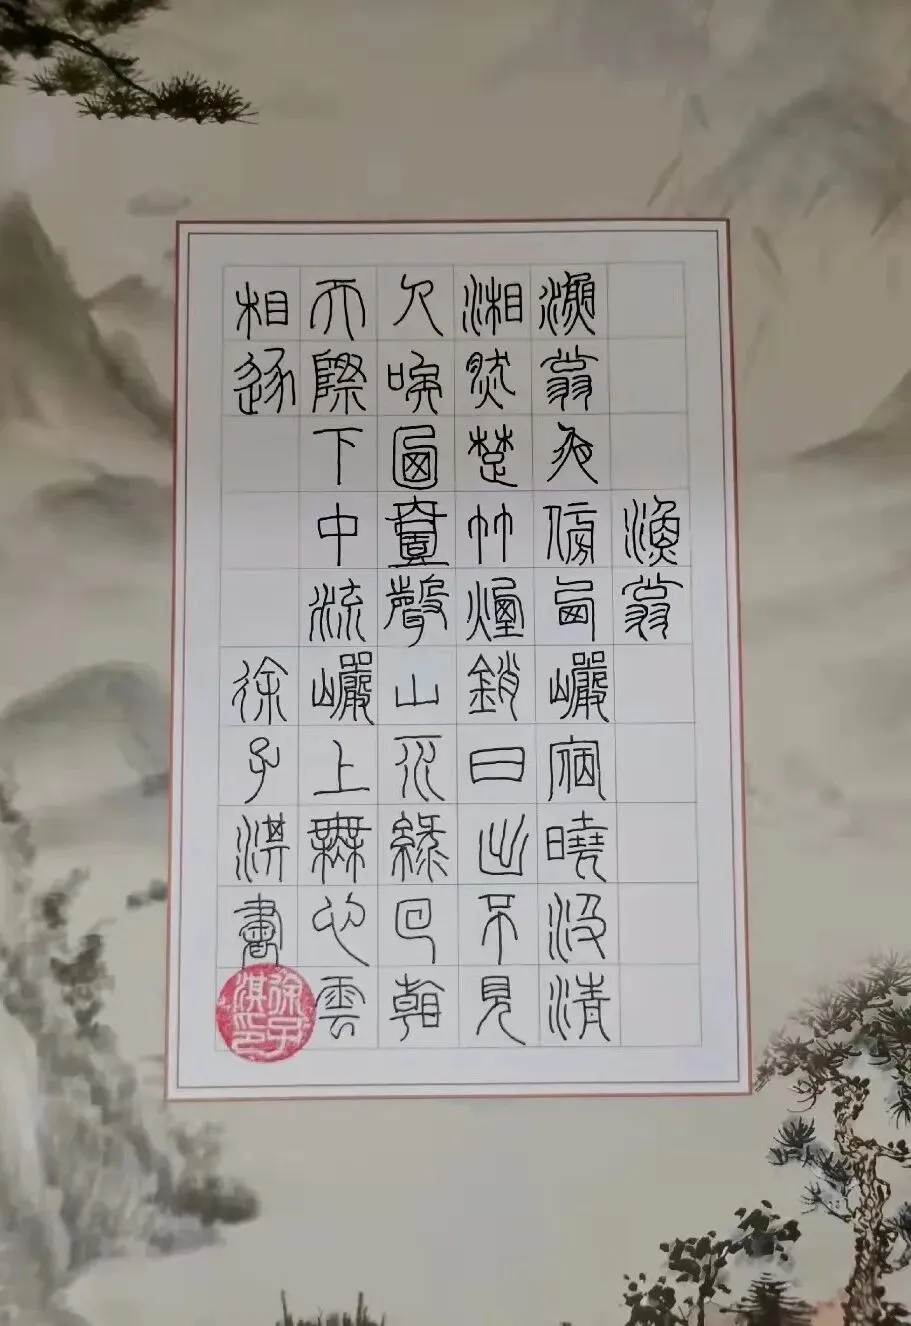 漁翁
漁翁夜傍西巖宿曉汲清
湘然楚竹煙銷日出不見
人欸乃壹聲山水綠回看
天際下中流巖上無心雲
相逐
徐子淇書
徐子淇印